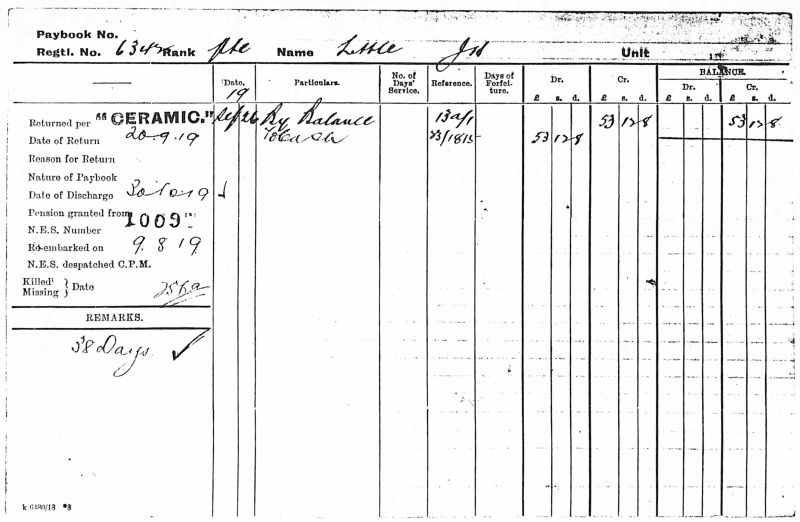 Paybook No.
Regtl. No. 6342 Rank Pte Name Little Unit
Date. Particulars. No. of Days' Service. Reference. Days of Forfeiture. Dr. Cr. BALANCE.
Dr. Cr.
19 £ s. d. £ s. d. £ s. d. £ s. d.
Returned per "CERAMIC." Sep 26 By Balance 13a/1 53 12 8 53 12 8
Date of Return 20-9-19 To Cash 53 12 8
Reason for Return
Nature of Paybook
Date of Discharge
Pension granted from
N.E.S. Number 1009
Re-embarked on 9. 8 19.
N.E.S. despatched C.P.M.
Killed
Missing } Date
REMARKS.
58 Days. ✓
k 6180/18 *3